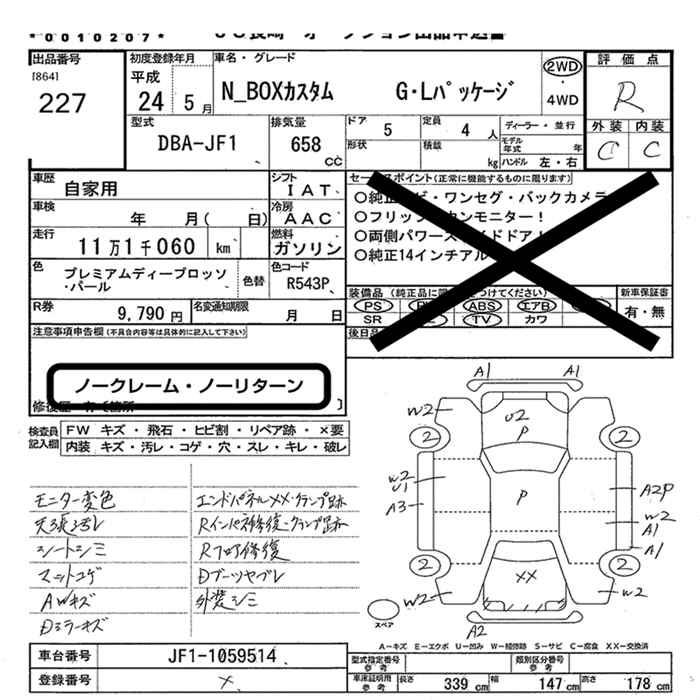 *0010207*
出品番号
[864]
227
初度登録年月
平成
24 5月
車名・グレード
N_BOXカスタム G・Lパッケージ
2WD
・
4WD
評価点
R
外装 内装
C C
型式
DBA-JF1
排気量
658
CC
ドア 5
定員 4 人
ディーラー・並行
形状
積載 kg
モデル年式 年
ハンドル 左・右
車歴 自家用
シフト
IAT
車検 年 月( 日)
冷房
AAC
走行 11万1千060 km
燃料
ガソリン
色 プレミアムディープロッソ
・パール
色替
色コード
R543P
R券 9,790円
名変通知期限 月 日
セールスポイント(正常に機能するものに限ります)
〇純正ナビ・ワンセグ・バックカメラ
〇フリップダウンモニター!
〇両側パワースライドドア!
〇純正14インチアル
装備品
新車保証書
有・無
PS ABS エアB
SR TV カワ
後日品
注意事項申告欄(不具合内容等は具体的に記入して下さい)
ノークレーム・ノーリターン
検査員
記入欄
FW キズ・飛石・ヒビ割・リペア跡・×要
内装 キズ・汚レ・コゲ・穴・スレ・キレ・破レ
モニター変色
天張汚レ
シートシミ
マットコゲ
AWキズ
Dミラーキズ
エンドパネルXX・クランプ跡
Rインパネ修復・クランプ跡
Rフロア修復
Dブーツヤブレ
外装シミ
A1 A1
W2 U2 P
2 2
W2
U1
A3
P
A2P
W2
A1
A1
2 2
XX
W2 W2
A2
スペア
A-キズ E-エクボ U-凹み W-補修跡 S-サビ C-腐食 XX-交換済
車台番号 JF1-1059514
登録番号 ×
型式指定番号
参考
類別区分番号
参考
車庫証明用
参考
長さ 339 cm 幅 147 cm 高さ 178 cm